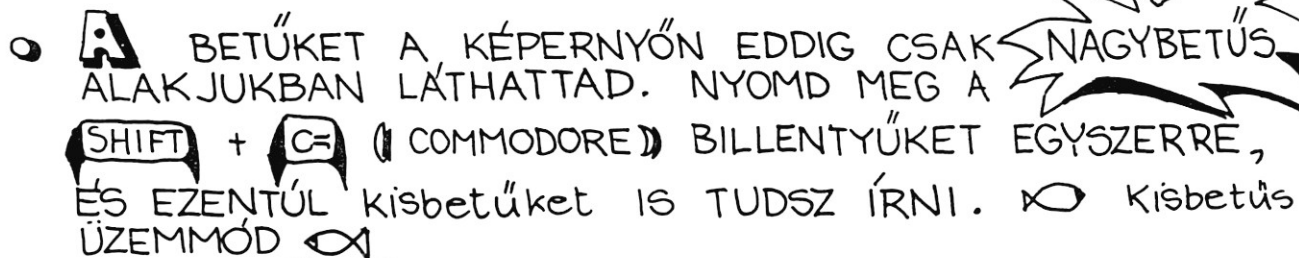 A BETŰKET A KÉPERNYŐN EDDIG CSAK NAGYBETŰS
ALAKJUKBAN LÁTHATTAD. NYOMD MEG A
SHIFT + C= (COMMODORE) BILLENTYŰKET EGYSZERRE,
ÉS EZENTÚL kisbetűket IS TUDSZ ÍRNI. kisbetűs
ÜZEMMÓD